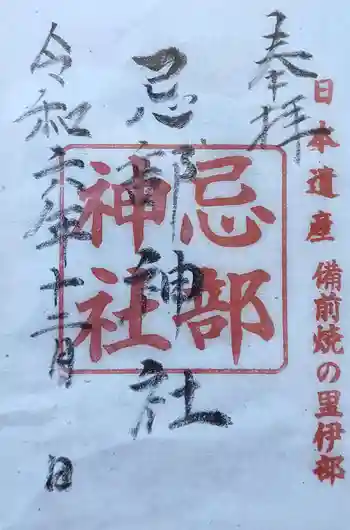 奉拝
日本遺産 備前焼の里伊部
忌部神社
忌部
神社
令和六年十二月 日